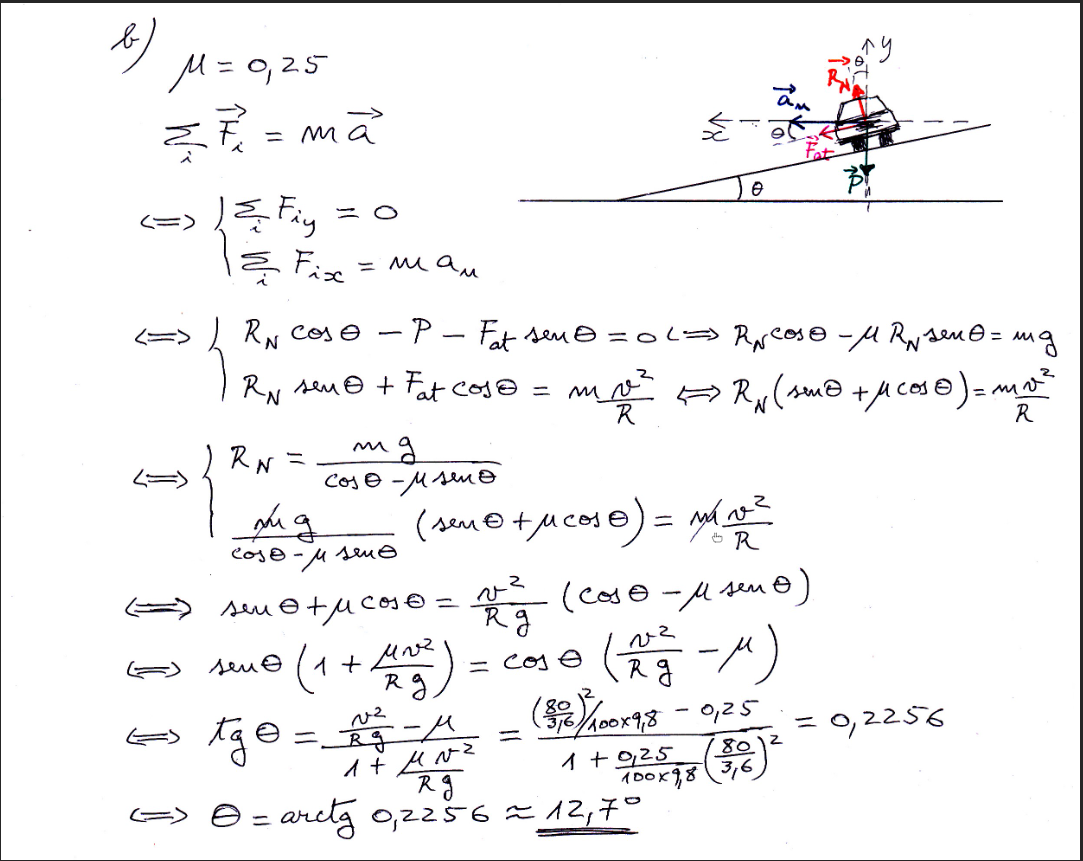 b)
μ = 0,25
∑ᵢ F⃗ᵢ = m a⃗
y
θ
R⃗_N
a⃗_n
x
θ
F⃗_at
P⃗
θ
<=> { ∑ᵢ F_iy = 0
∑ᵢ F_ix = m a_n
<=> { R_N cos θ − P − F_at sen θ = 0 <=> R_N cos θ − μ R_N sen θ = mg
R_N sen θ + F_at cos θ = m v²/R <=> R_N (sen θ + μ cos θ) = m v²/R
<=> { R_N = mg/(cos θ − μ sen θ)
mg/(cos θ − μ sen θ) (sen θ + μ cos θ) = m v²/R
<=> sen θ + μ cos θ = v²/(R g) (cos θ − μ sen θ)
<=> sen θ (1 + μv²/(R g)) = cos θ (v²/(R g) − μ)
<=> tg θ = (v²/(R g) − μ)/(1 + μ v²/(R g)) = ((80/3,6)²/100×9,8 − 0,25)/(1 + 0,25/(100×9,8) (80/3,6)²) = 0,2256
<=> θ = arctg 0,2256 ≈ 12,7°